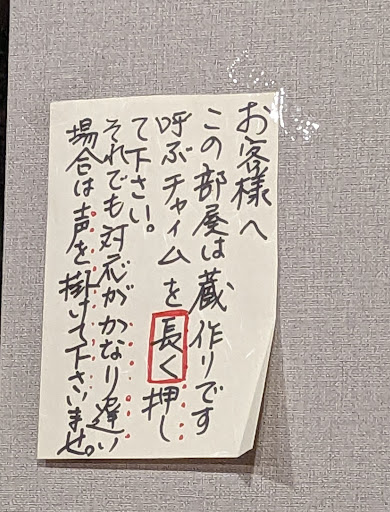 お客様へ
この部屋は蔵作りです
呼ぶチャイムを長く押し
て下さい。
それでも対応がかなり遅い
場合は声を掛けて下さいませ。